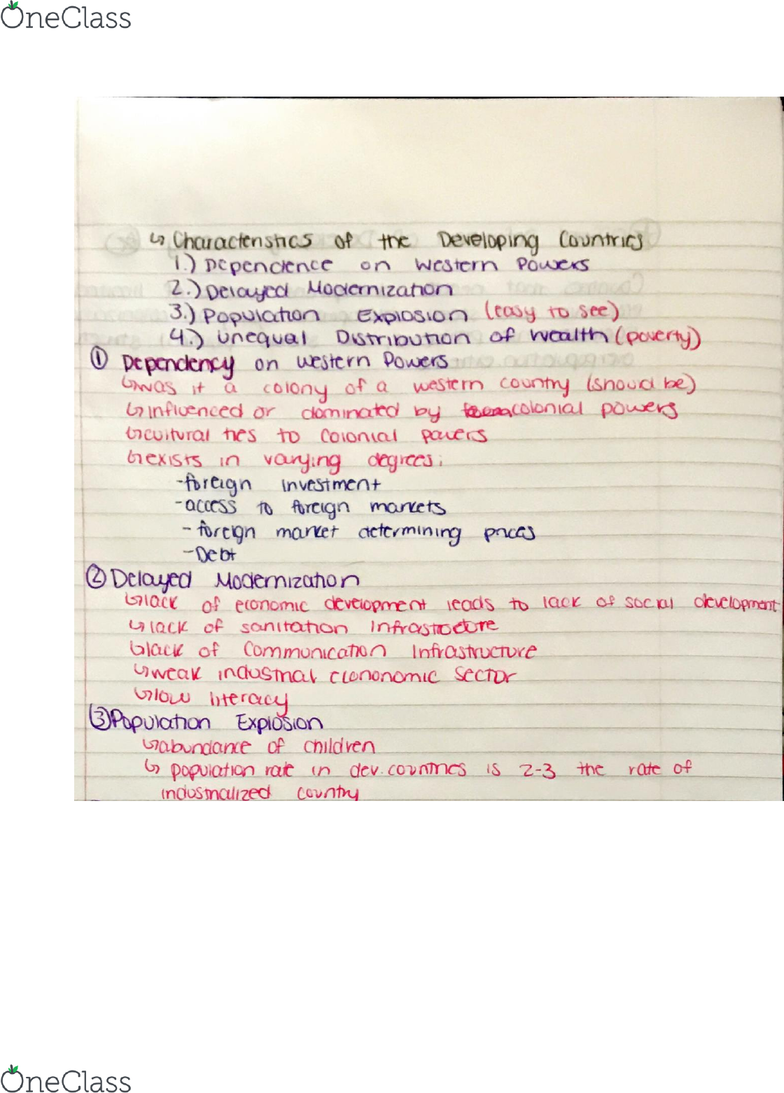 OneClass
↳ Characteristics of the Developing Countries
1.) Dependence on Western Powers
2.) Delayed Modernization
3.) Population Explosion (easy to see)
4.) Unequal Distribution of Wealth (poverty)
① Dependency on Western Powers
↳ was it a colony of a western country (should be)
↳ influenced or dominated by colonial powers
↳ cultural ties to colonial powers
↳ exists in varying degrees:
-foreign investment
-access to foreign markets
- foreign market determining prices
-Debt
② Delayed Modernization
↳ lack of economic development leads to lack of social development
↳ lack of sanitation infrastructure
↳ lack of Communication Infrastructure
↳ weak industrial econonomic sector
↳ low literacy
③ Population Explosion
↳ abundance of children
↳ population rate in dev. countries is 2-3 the rate of
industrialized country
OneClass